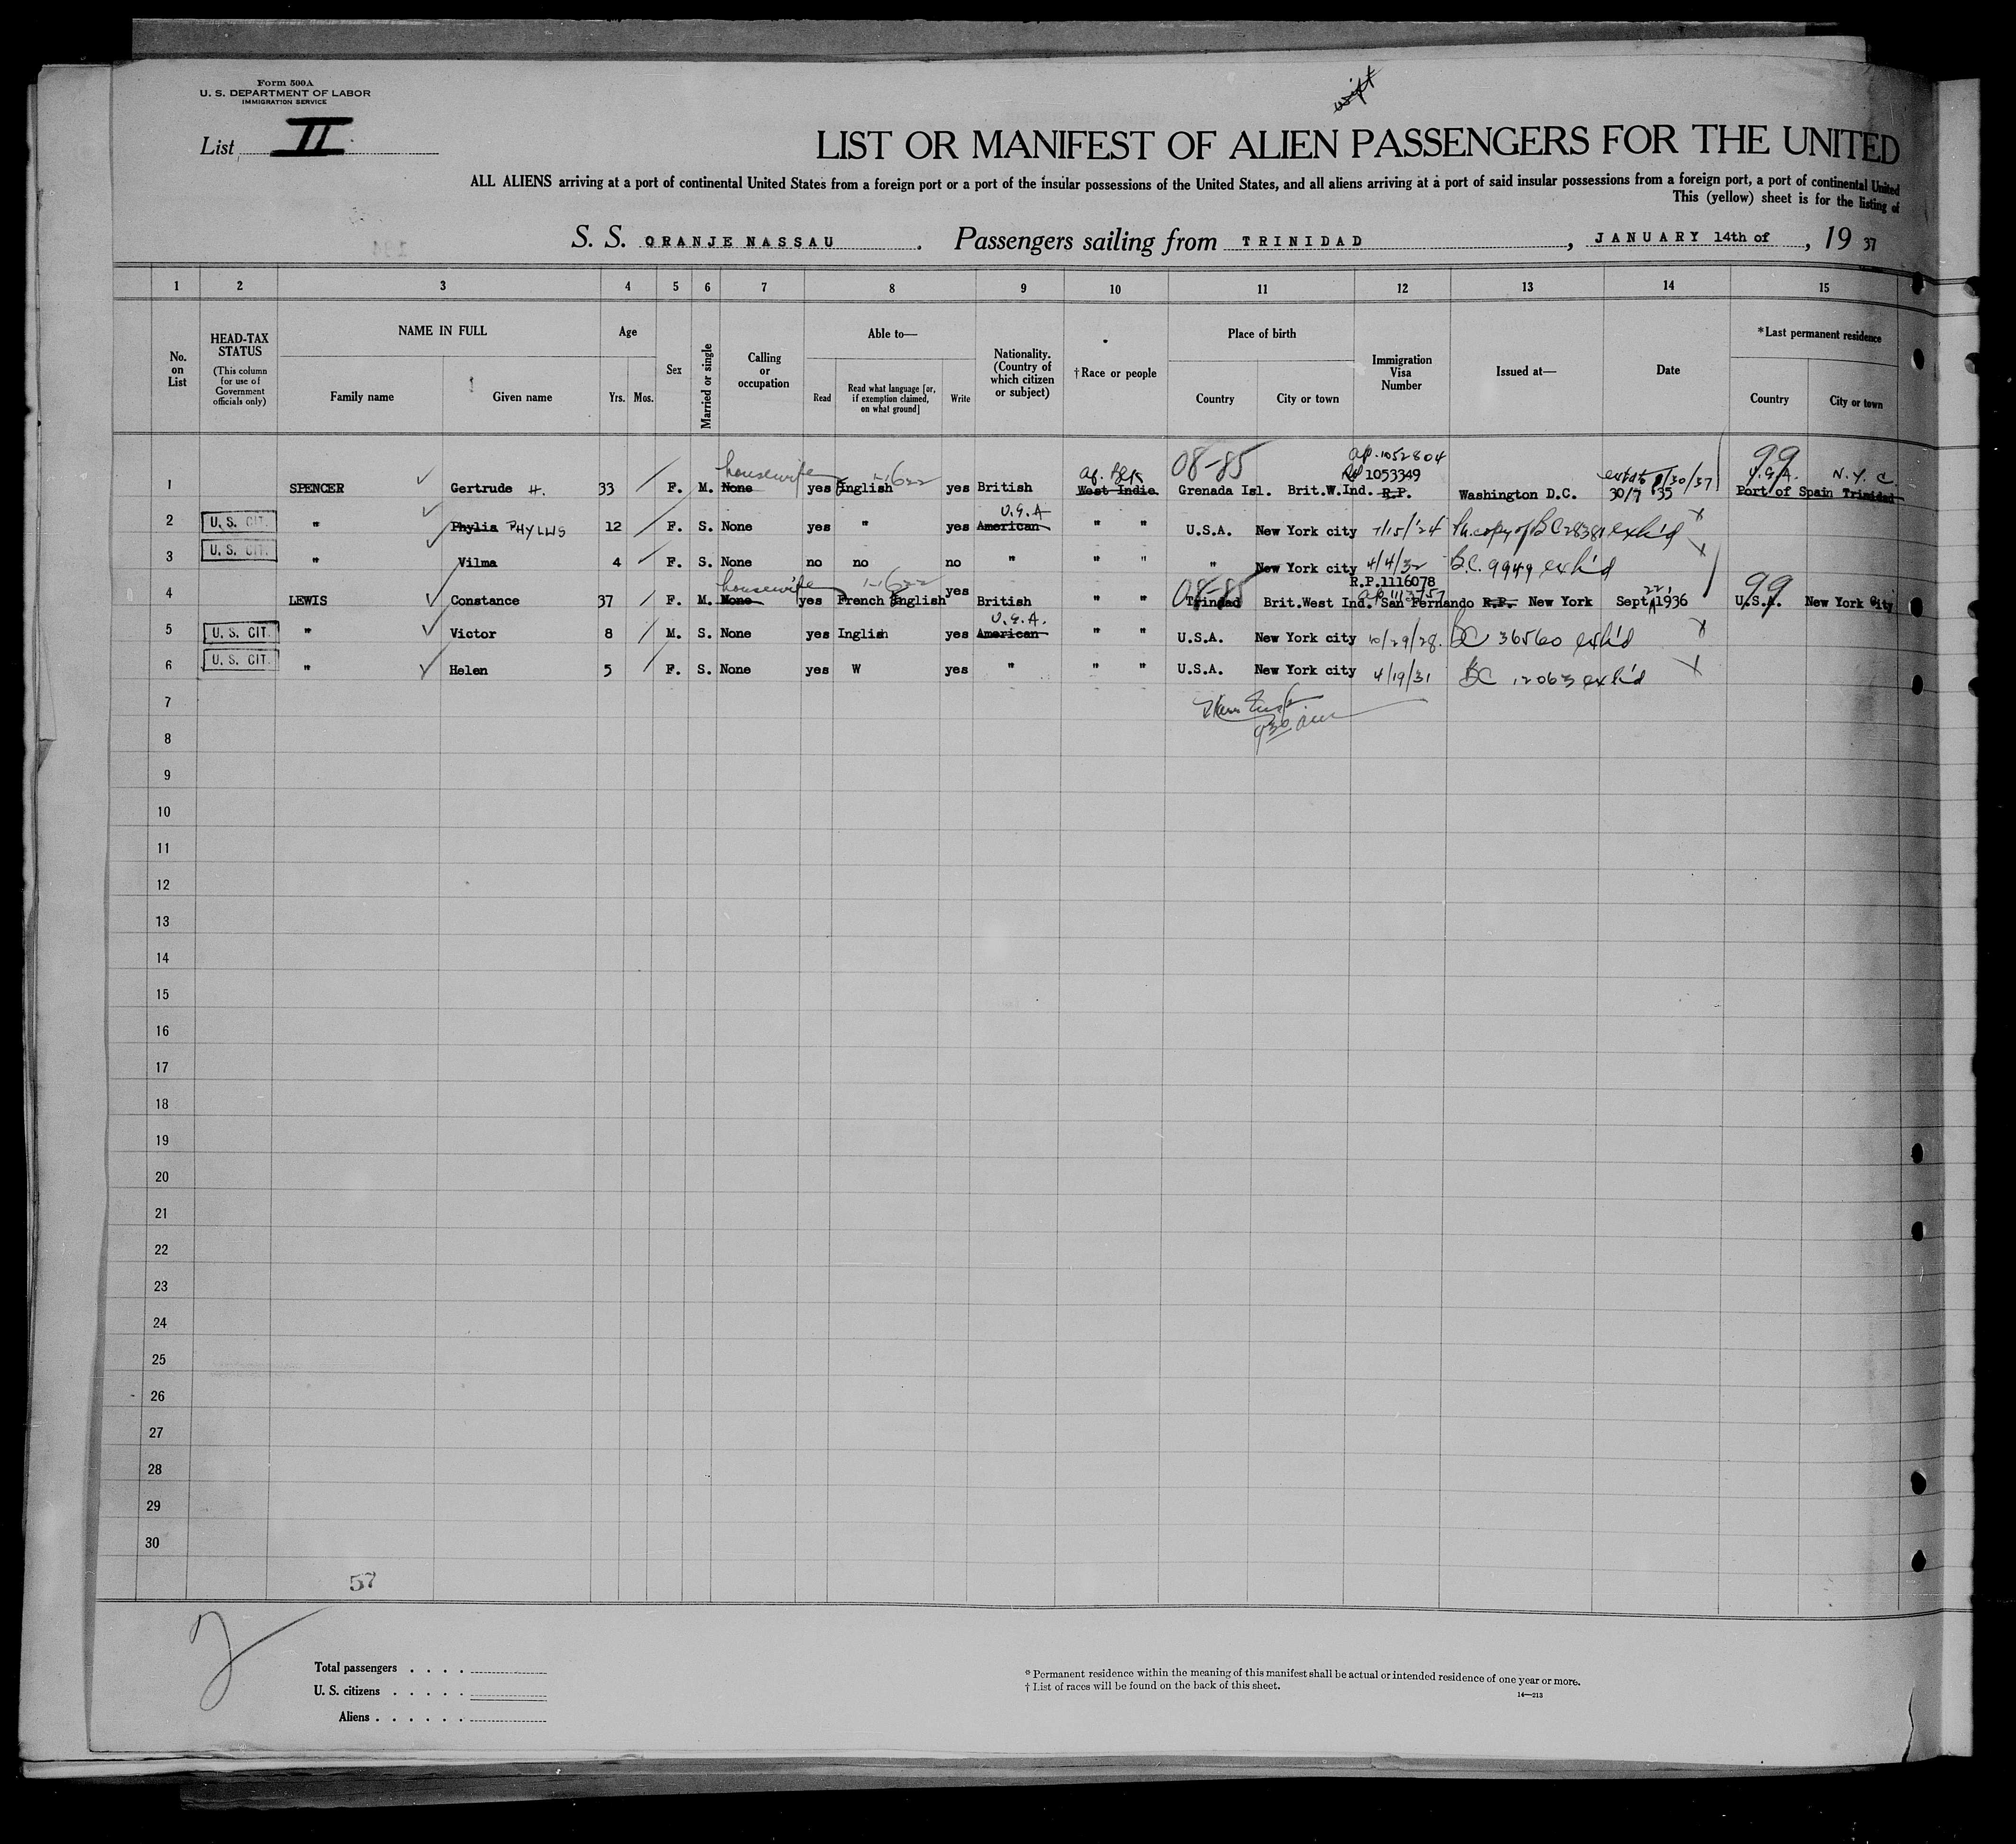 Form 500A
U. S. DEPARTMENT OF LABOR
IMMIGRATION SERVICE
List II
LIST OR MANIFEST OF ALIEN PASSENGERS FOR THE UNITED
ALL ALIENS arriving at a port of continental United States from a foreign port or a port of the insular possessions of the United States, and all aliens arriving at a port of said insular possessions from a foreign port, a port of continental United
This (yellow) sheet is for the listing of
S. S. ORANJE NASSAU. Passengers sailing from TRINIDAD, JANUARY 14th of, 19 37
1 2 3 4 5 6 7 8 9 10 11 12 13 14 15
No. on List
HEAD-TAX STATUS
(This column for use of Government officials only)
NAME IN FULL
Family name Given name
Age
Yrs. Mos.
Sex
Married or single
Calling or occupation
Able to—
Read
Read what language [or, if exemption claimed, on what ground]
Write
Nationality. (Country of which citizen or subject)
†Race or people
Place of birth
Country City or town
Immigration Visa Number
Issued at—
Date
*Last permanent residence
Country City or town
housewife 08-85 ap. 1052804 99
af. Blk 1053349 U.S.A. N.Y.C.
1 SPENCER Gertrude H. 33 F. M. None yes English yes British West Indie. Grenada Isl. Brit.W.Ind. R.P. Washington D.C. 30/7 35 Port of Spain Trinidad
U.S.A
2 U. S. CIT. " Phylia PHYLLIS 12 F. S. None yes " yes American " " U.S.A. New York city 7/15/24 Ph. copy of BC 28381 exh'd x
3 U. S. CIT. " Vilma 4 F. S. None no no no " " " " New York city 4/4/32 B.C. 9949 exh'd x
housewife 08-85 R.P.1116078 99
4 LEWIS Constance 37 F. M. None yes French English yes British " " Trindad Brit.West Ind. San Fernando R.P. New York Sept 22, 1936 U.S.A. New York City
U.S.A.
5 U. S. CIT. " Victor 8 M. S. None yes Inglish yes American " " U.S.A. New York city 10/29/28. BC 36560 exh'd x
6 U. S. CIT. " Helen 5 F. S. None yes W yes " " " U.S.A. New York city 4/19/31 BC 12063 exh'd x
7
930 am
8
9
10
11
12
13
14
15
16
17
18
19
20
21
22
23
24
25
26
27
28
29
30
57
2
Total passengers
U. S. citizens
Aliens
* Permanent residence within the meaning of this manifest shall be actual or intended residence of one year or more.
† List of races will be found on the back of this sheet.
14—213